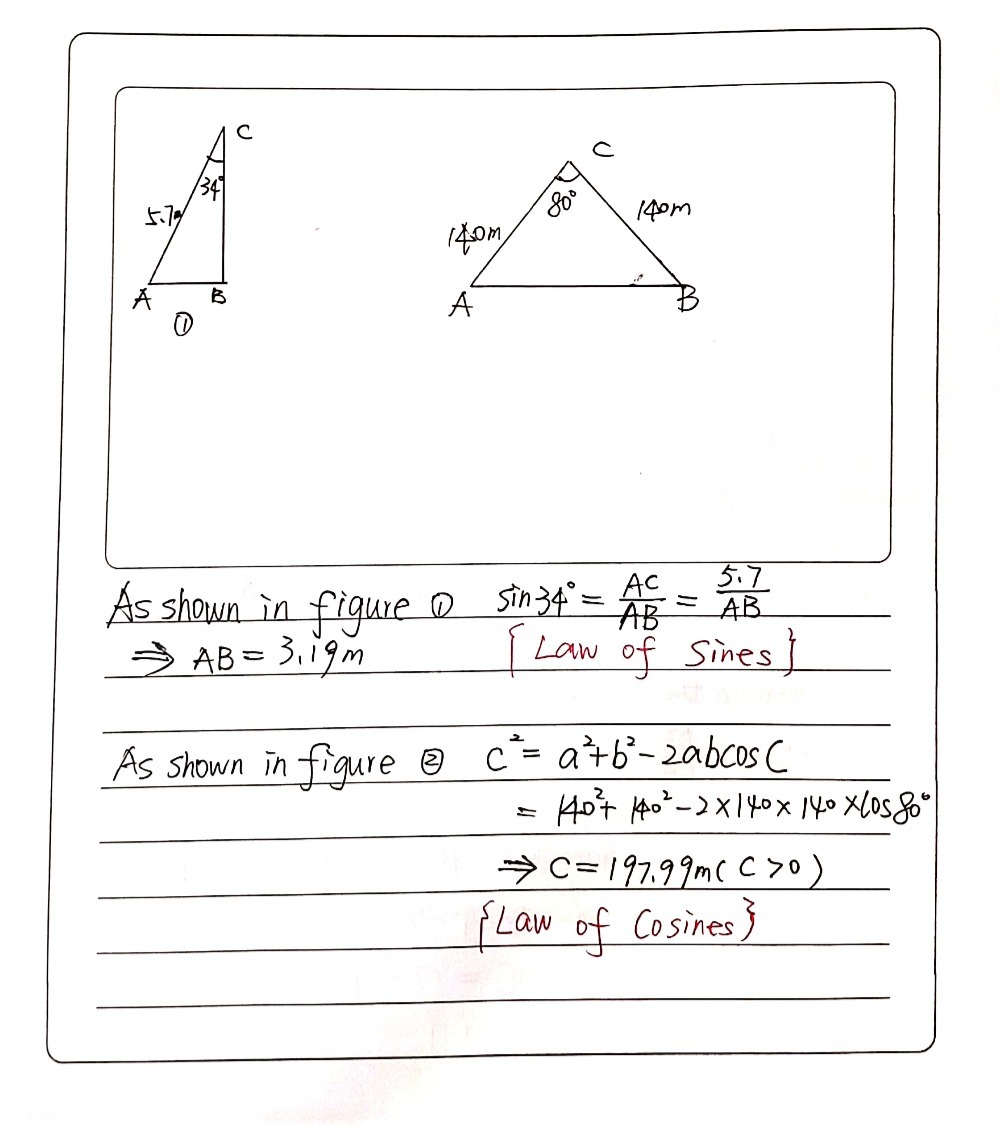 C
34°
5.7
A
B
①
C
80°
140m
140m
A
B
As shown in figure ① sin34° = AC/AB = 5.7/AB
⇒ AB = 3.19m {Law of Sines}
As shown in figure ② c² = a²+b²-2abcosC
= 140²+ 140²-2×140×140×cos80°
⇒ C=197.99m(C>0)
{Law of Cosines}